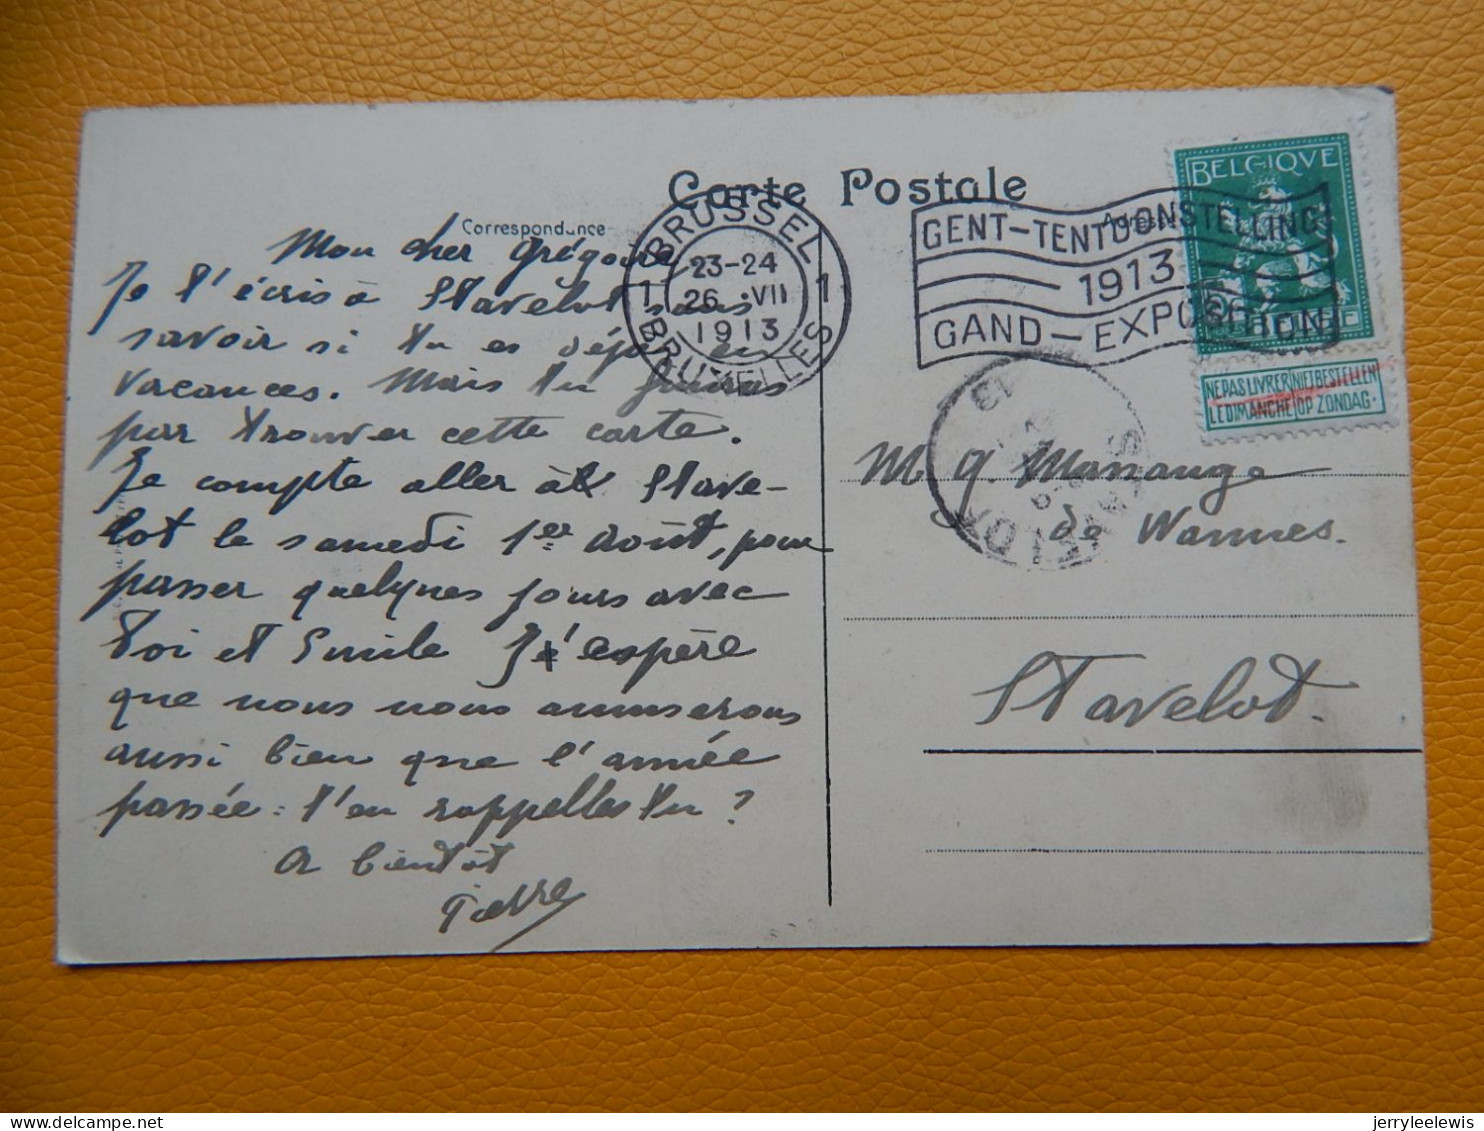 Carte Postale
Correspondance
Adresse
BRUSSEL
23-24
1 26 VII 1
1913
BRUXELLES
GENT-TENTOONSTELLING
1913
GAND-EXPOSITION
BELGIQVE
NE PAS LIVRER NIET BESTELLEN
LE DIMANCHE OP ZONDAG.
STAVELOT
13
Mon cher Grégoire
Je t'écris à Stavelot sans
savoir si tu es déjà en
vacances. Mais tu finiras
par trouver cette carte.
Je compte aller à Stave-
lot le samedi 1er Août, pour
passer quelques jours avec
toi et Emile J'espère
que nous nous amuserons
aussi bien que l'année
passée: t'en rappelles tu?
A bientôt
Pierre
M G. Massange
de Wannes.
Stavelot.
jerryleelewis